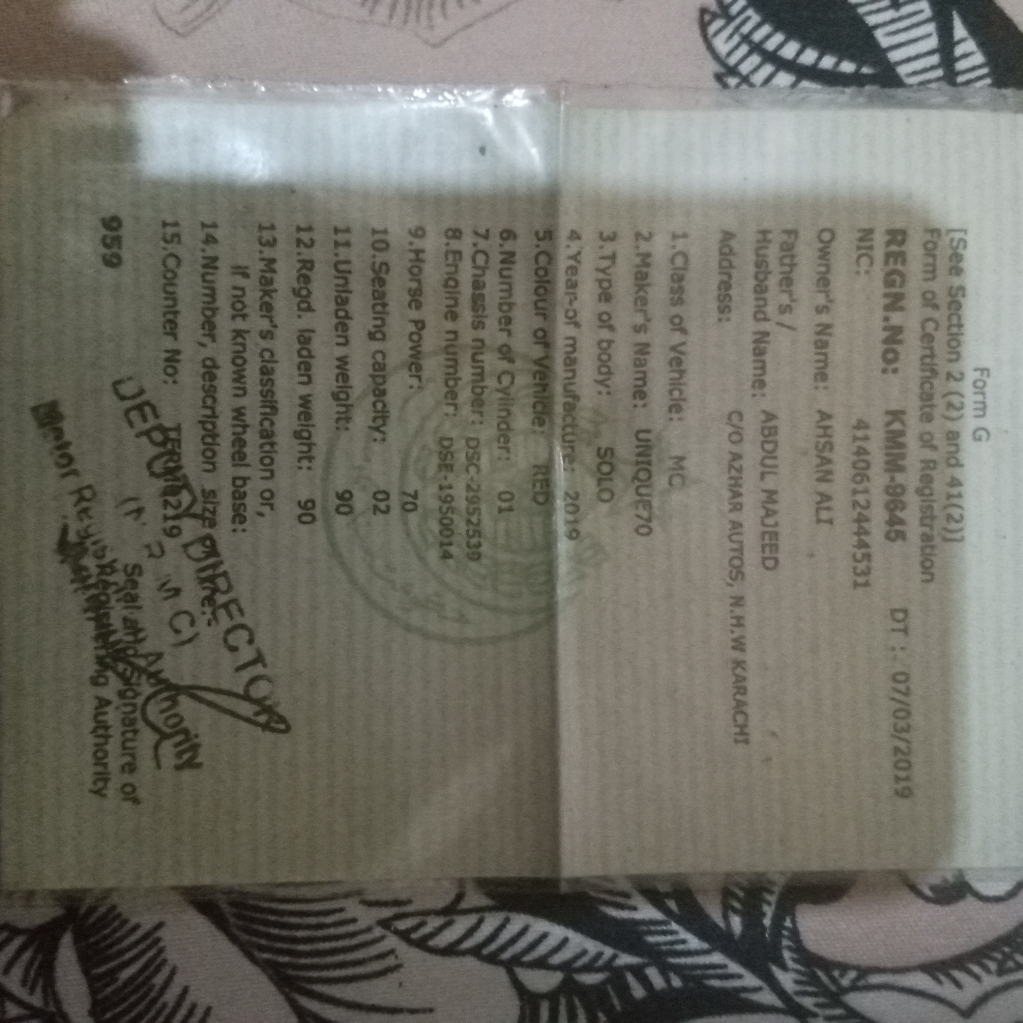 Form G
[See Section 2 (2) and 41(2)]
Form of Certificate of Registration
REGN.No: KMM-9645 DT : - 07/03/2019
NIC: 4140612444531
Owner's Name: AHSAN ALI
Father's /
Husband Name: ABDUL MAJEED
Address: C/O AZHAR AUTOS, N.H.W KARACHI
1.Class of Vehicle: MC
2.Maker's Name: UNIQUE70
3.Type of body: SOLO
4.Year of manufacture: 2019
5.Colour of Vehicle: RED
6.Number of Cylinder: 01
7.Chassis number: DSC-2952539
8.Engine number: DSE-1950014
9.Horse Power: 70
10.Seating capacity: 02
11.Unladen weight: 90
12.Regd. laden weight: 90
13.Maker's classification or,
if not known wheel base:
14.Number, description size
15.Counter No:
DEPUTY DIRECTOR
959
Seal and Signature of
Registering Authority